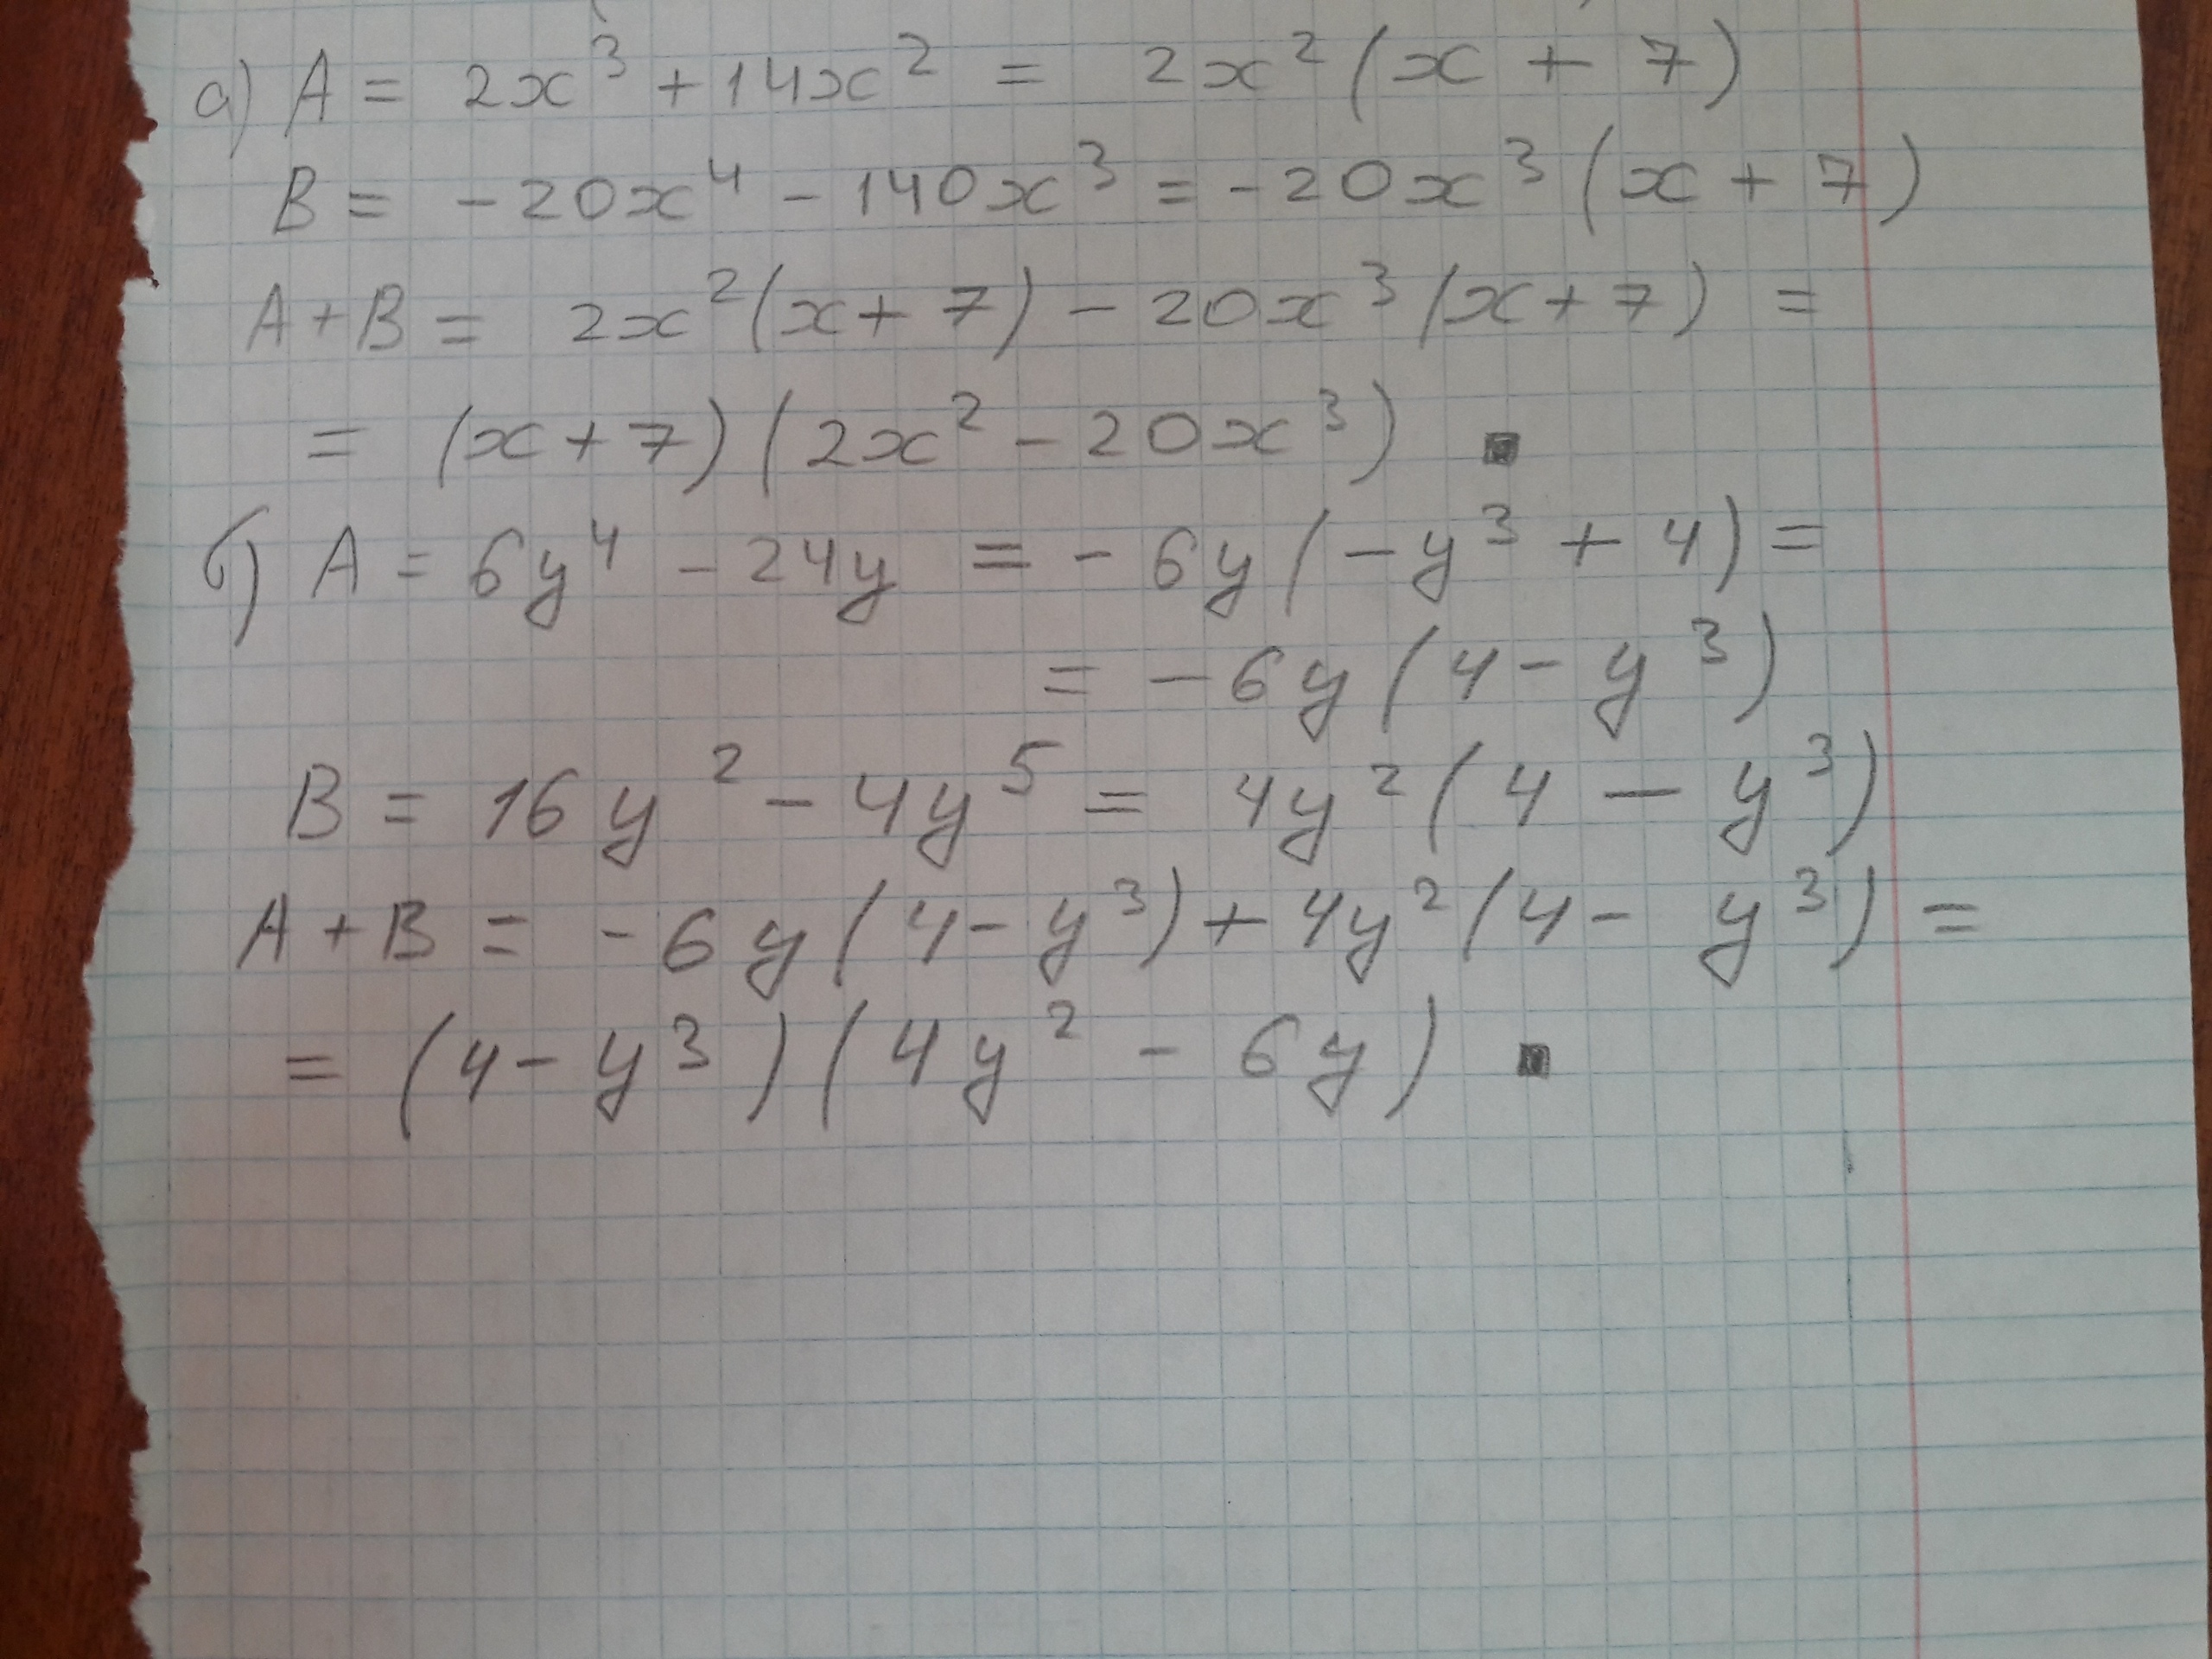 а) A = 2x³ + 14x² = 2x²(x + 7)
B = -20x⁴ - 140x³ = -20x³(x + 7)
A + B = 2x²(x + 7) - 20x³(x + 7) =
= (x + 7)(2x² - 20x³) ▪
б) A = 6y⁴ - 24y = -6y(-y³ + 4) =
= -6y(4 - y³)
B = 16y² - 4y⁵ = 4y²(4 - y³)
A + B = -6y(4 - y³) + 4y²(4 - y³) =
= (4 - y³)(4y² - 6y) ▪